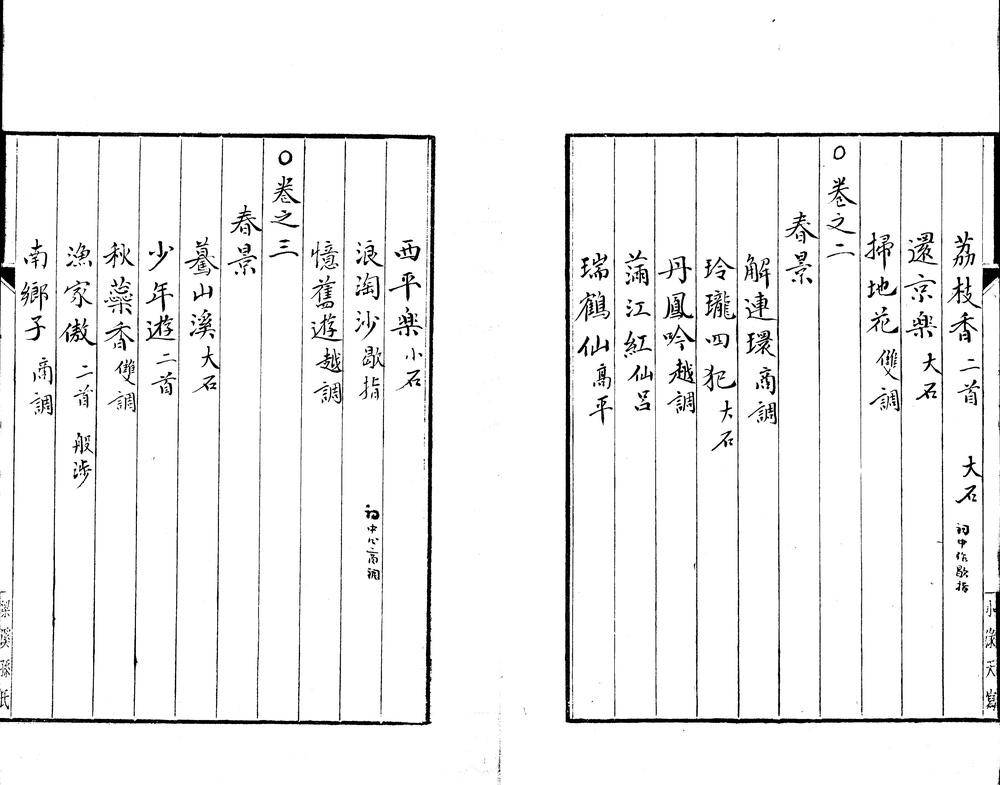 荔枝香二首 大石 词中作歇指
還京樂大石
掃地花雙調
○卷之二
春景
解連環商調
玲瓏四犯大石
丹鳳吟越調
滿江紅仙呂
瑞鶴仙高平
西平樂小石
浪淘沙歇指 词中人商调
憶舊遊越調
○卷之三
春景
驀山溪大石
少年遊二首
秋蘂香雙調
漁家傲二首 般涉
南鄉子商調
小淥天鈔
梁溪孫氏